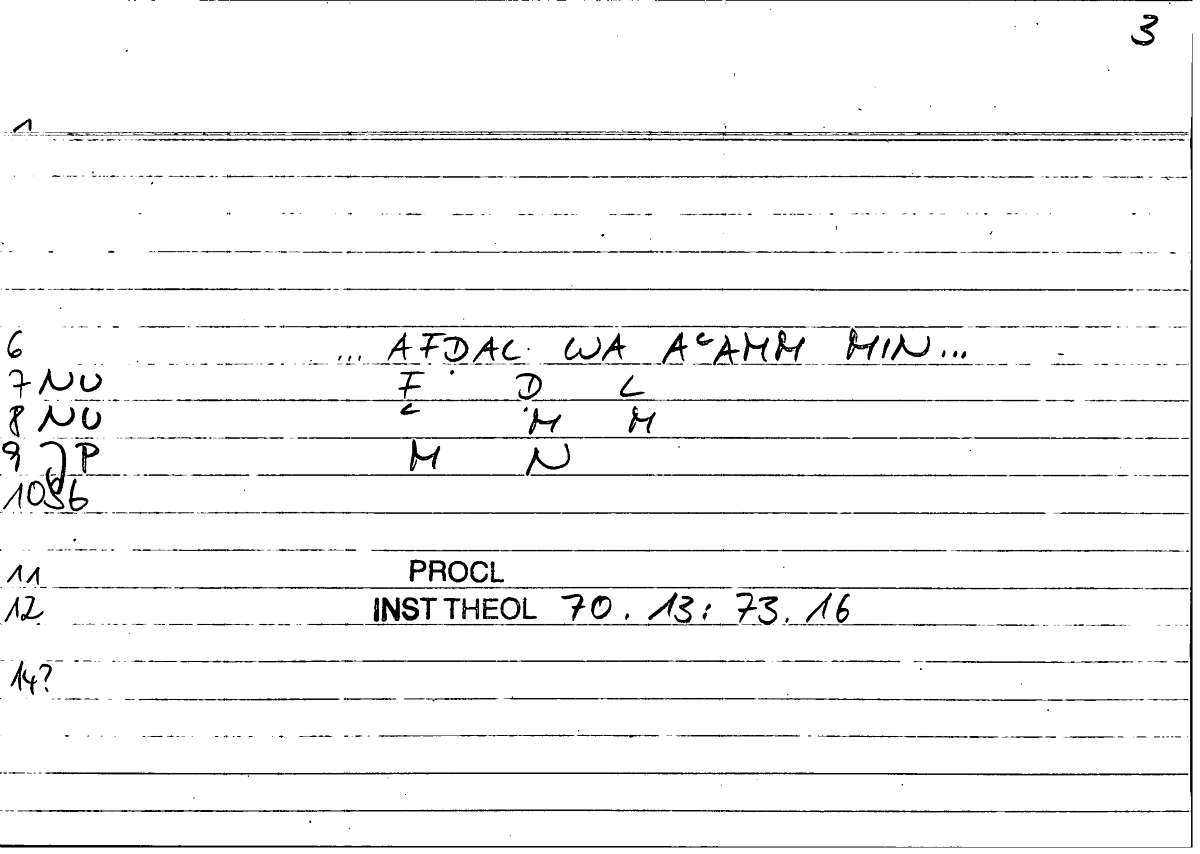 3
1
6 ... AFḌAL WA AᶜAMM MIN...
7 NU F Ḍ L
8 NU ᶜ M M
9 JP M N
10 S6
11 PROCL
12 INST THEOL 70. 13: 73. 16
14?